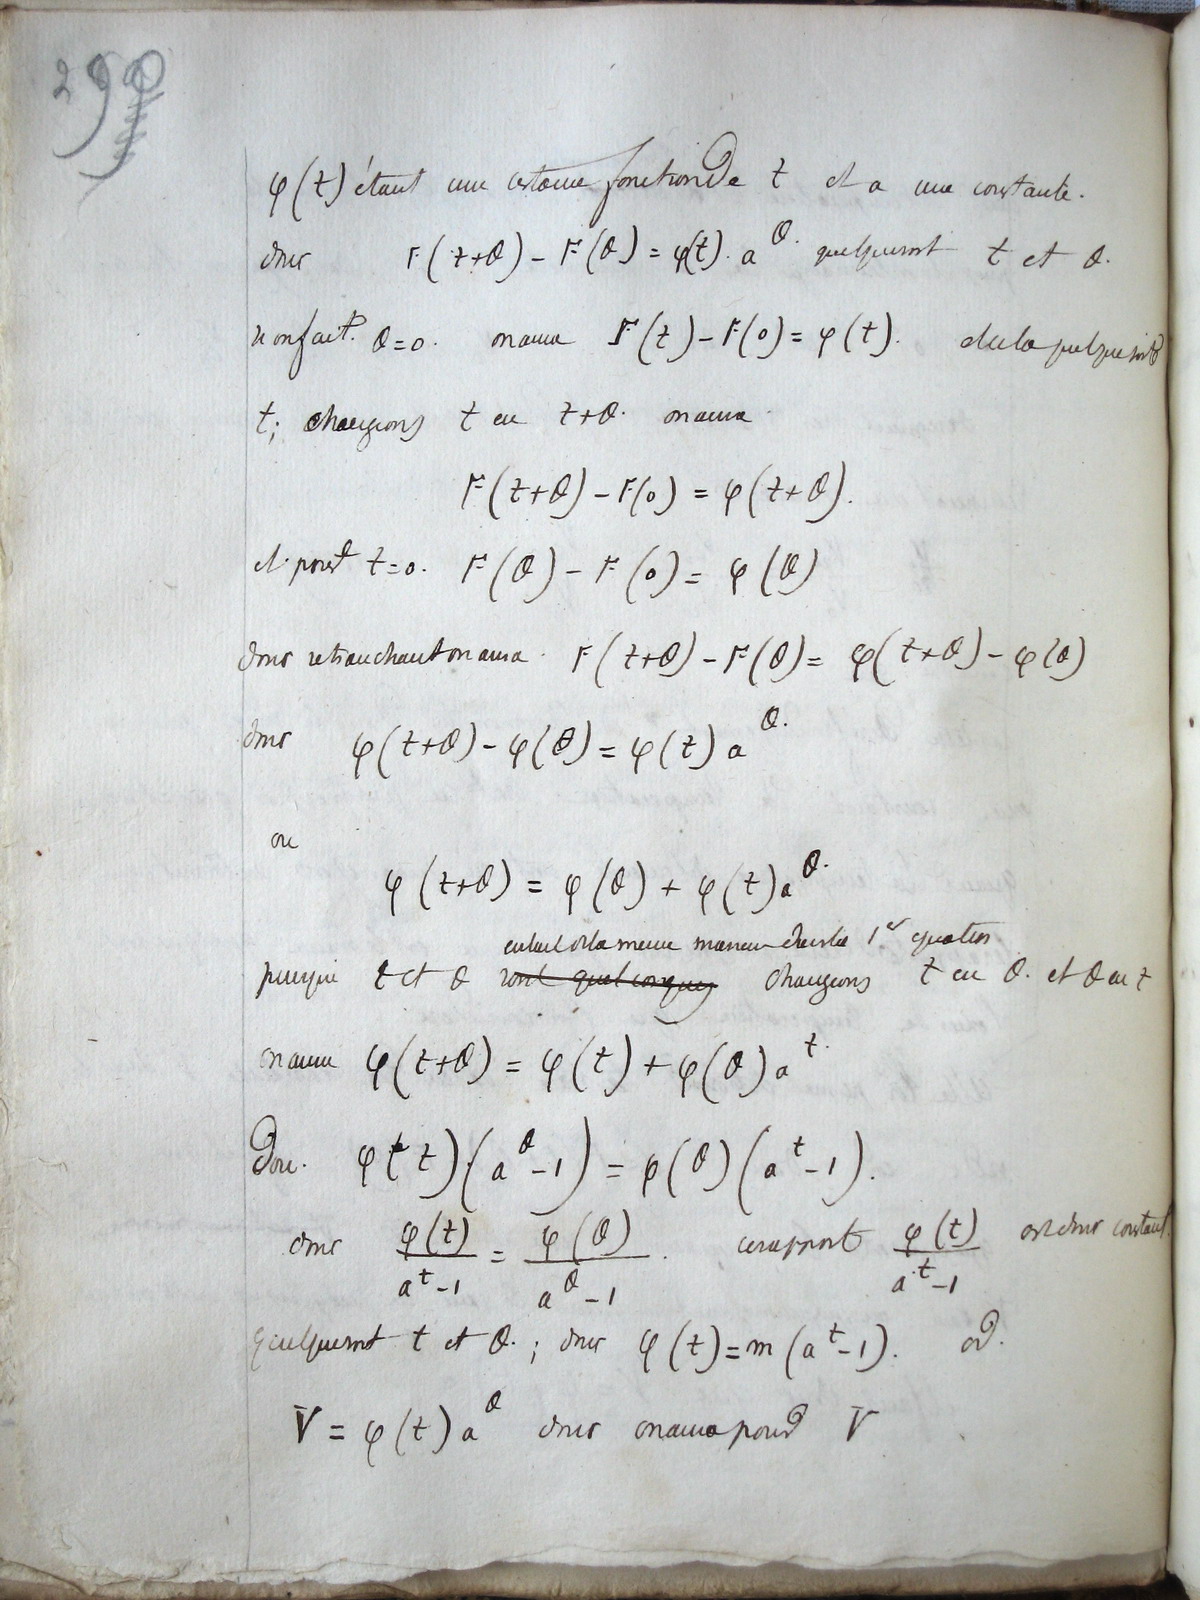 φ(t) étant une certaine fonction de t et a une constante.
donc F(t+θ) – F(θ) = φ(t). a^θ. quelquesoit t et θ.
si on fait θ=0. on aura F(t) – F(0) = φ(t). et cela quelque soit
t; changeons t en t+θ. on aura.
F(t+θ) – F(0) = φ(t+θ).
et pour t=0. F(θ) – F(0) = φ(θ)
donc retranchant on aura. F(t+θ) – F(θ) = φ(t+θ) – φ(θ)
donc φ(t+θ) – φ(θ) = φ(t) a^θ.
ou
φ(t+θ) = φ(θ) + φ(t) a^θ.
entrent de la meme maniere dans la 1er equation
puisque t et θ sont quelconques changeons t en θ. et θ en t
on aura φ(t+θ) = φ(t) + φ(θ) a^t.
Donc. φ(t) (a^θ – 1) = φ(θ) (a^t – 1).
donc φ(t)/(a^t – 1) = φ(θ)/(a^θ – 1). ce rapport φ(t)/(a^t – 1) est donc constant
quelquesoit t et θ.; donc φ(t) = m (a^t – 1). or.
V = φ(t) a^θ donc on aura pour V